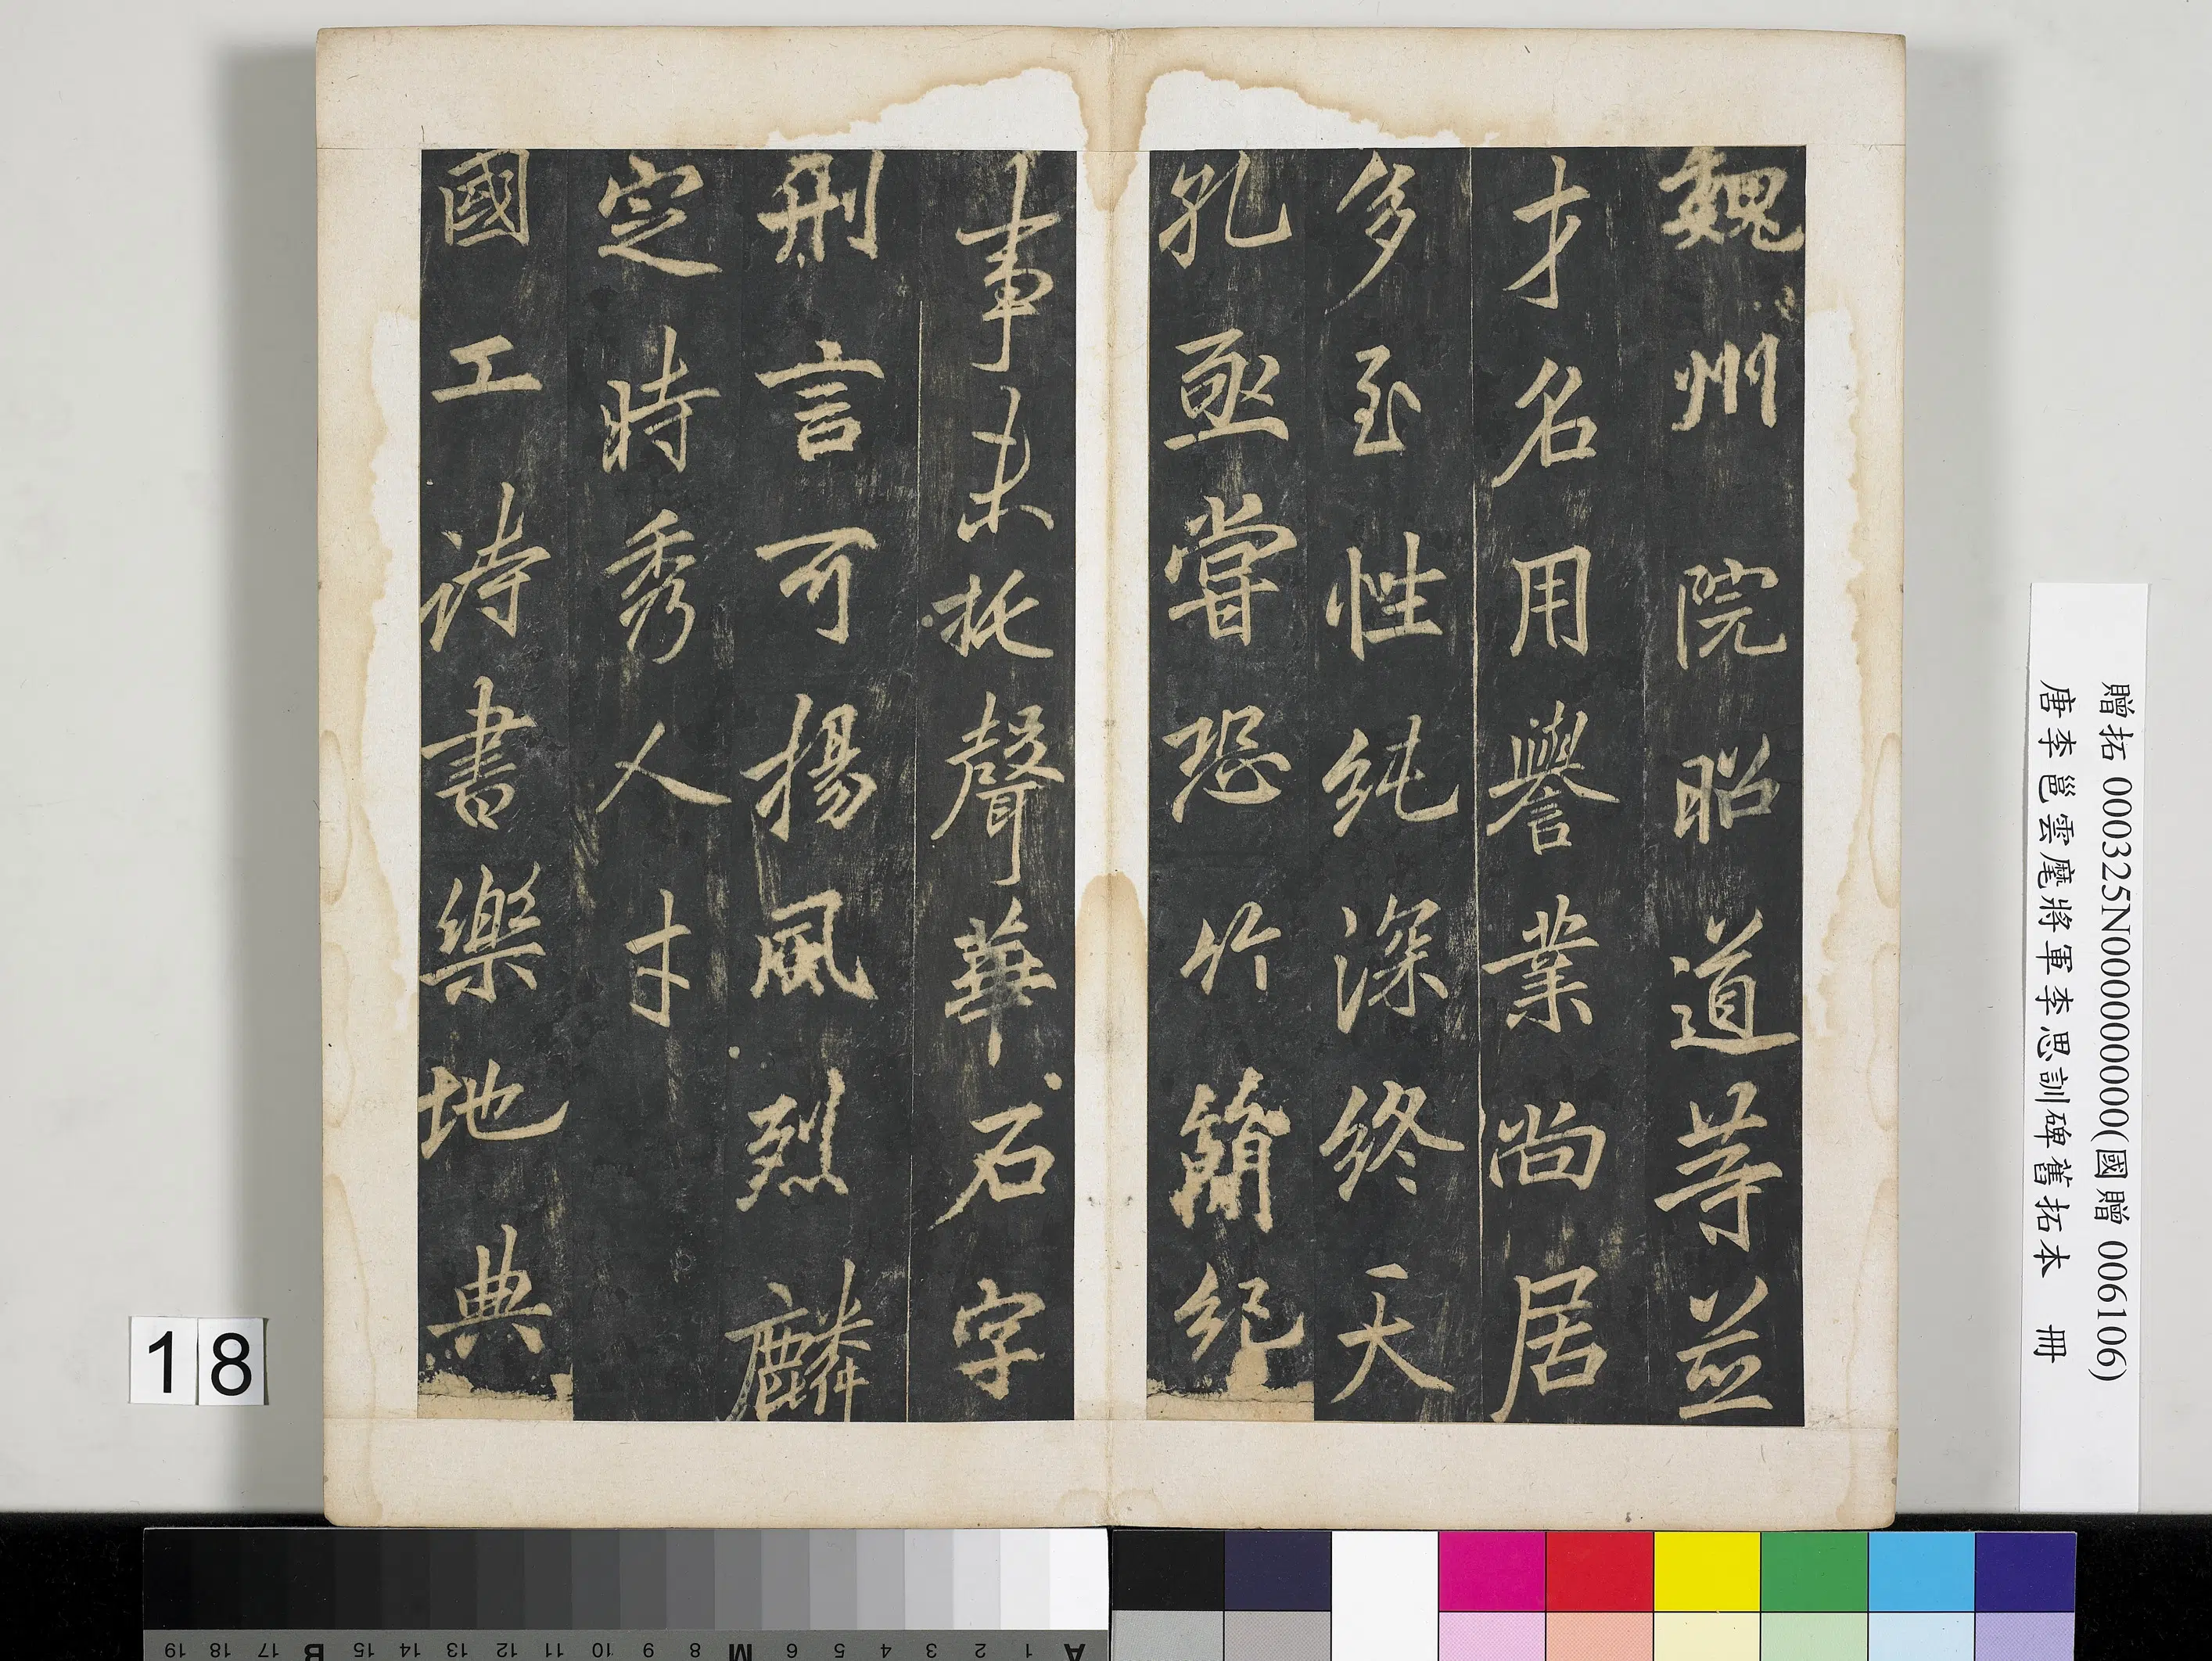 魏州院昭道等並
才名用譽業尚居
多至性純深終天
孔亟嘗恐竹簡紀
事未托聲華石字
刑言可揚風烈麟
定時秀人才
國工詩書樂地典
贈拓 000325N000000000(國贈 006106)
唐李邕雲麾將軍李思訓碑舊拓本 冊
18
A 1 2 3 4 5 6 M 8 9 10 11 12 13 14 15 B 17 18 19